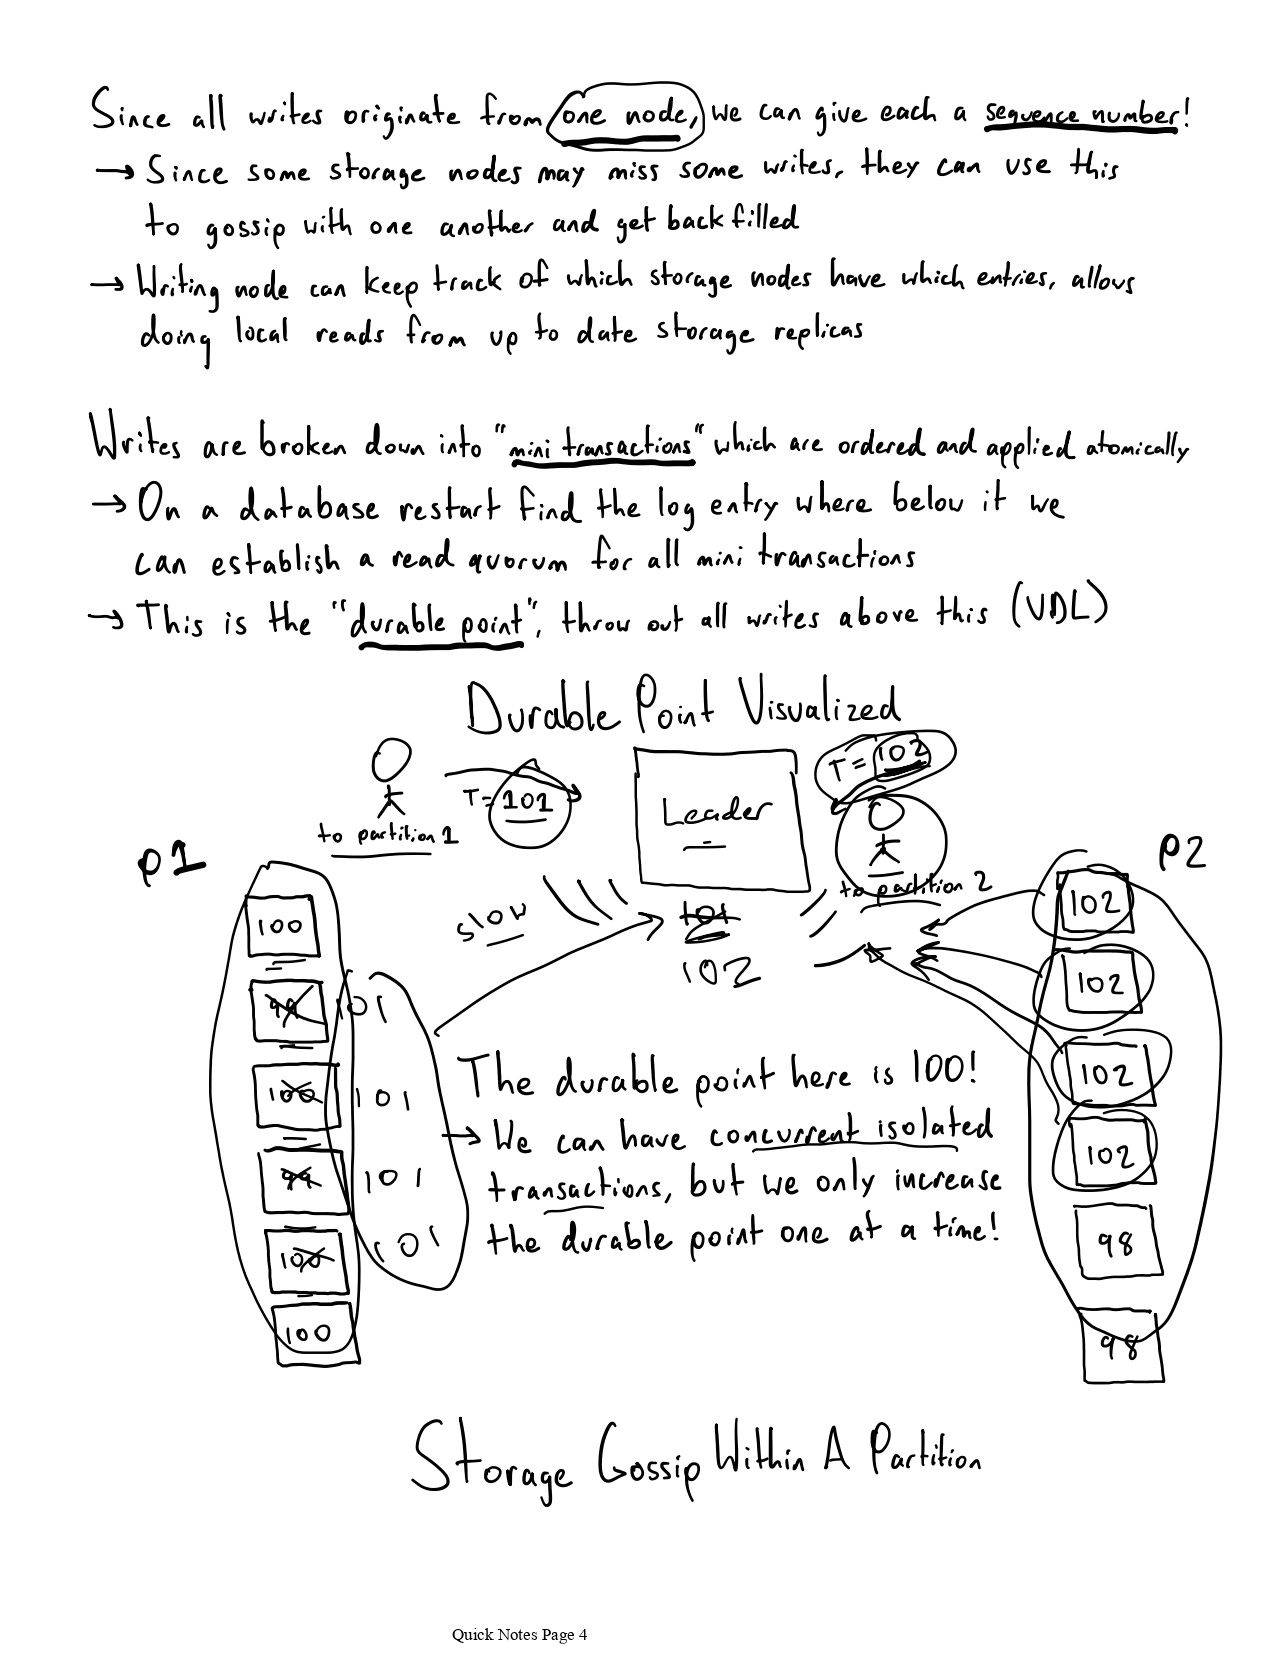 Since all writes originate from one node, we can give each a sequence number!
→ Since some storage nodes may miss some writes, they can use this
to gossip with one another and get back filled
→ Writing node can keep track of which storage nodes have which entries, allows
doing local reads from up to date storage replicas
Writes are broken down into "mini transactions" which are ordered and applied atomically
→ On a database restart find the log entry where below it we
can establish a read quorum for all mini transactions
→ This is the "durable point", throw out all writes above this (VDL)
Durable Point Visualized
T=101
Leader
T=102
to partition 1
to partition 2
P1
P2
slow
101
102
100
99 101
100 101
99 101
100 101
100
102
102
102
102
98
98
The durable point here is 100!
→ We can have concurrent isolated
transactions, but we only increase
the durable point one at a time!
Storage Gossip Within A Partition
Quick Notes Page 4